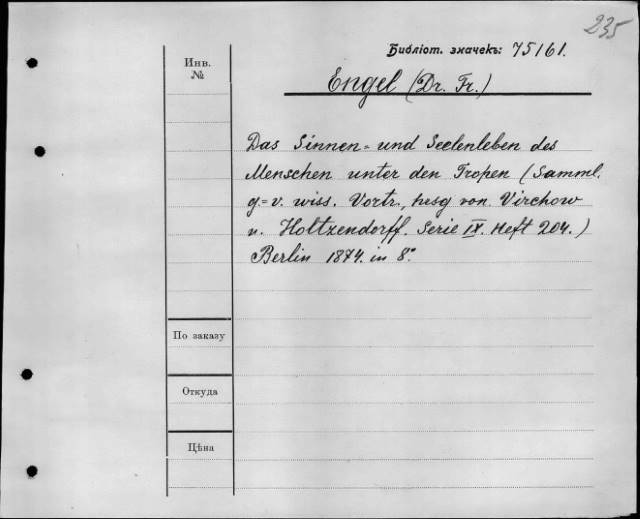 235
Библіот. значекъ: 75161.
Инв.
№
Engel (Dr. Fr.)
Das Sinnen= und Seelenleben des
Menschen unter den Tropen (Samml.
g=v. wiss. Vortr., hesg von Virchow
u. Holtzendorff. Serie IX. Heft 204.)
Berlin 1874. in 8°
По заказу
Откуда
Цѣна